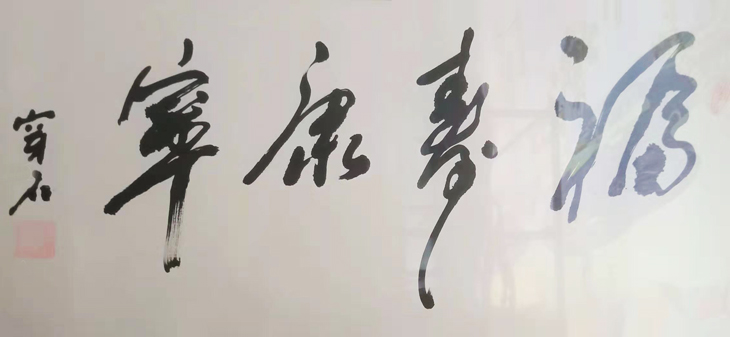 福寿康寧
穿石